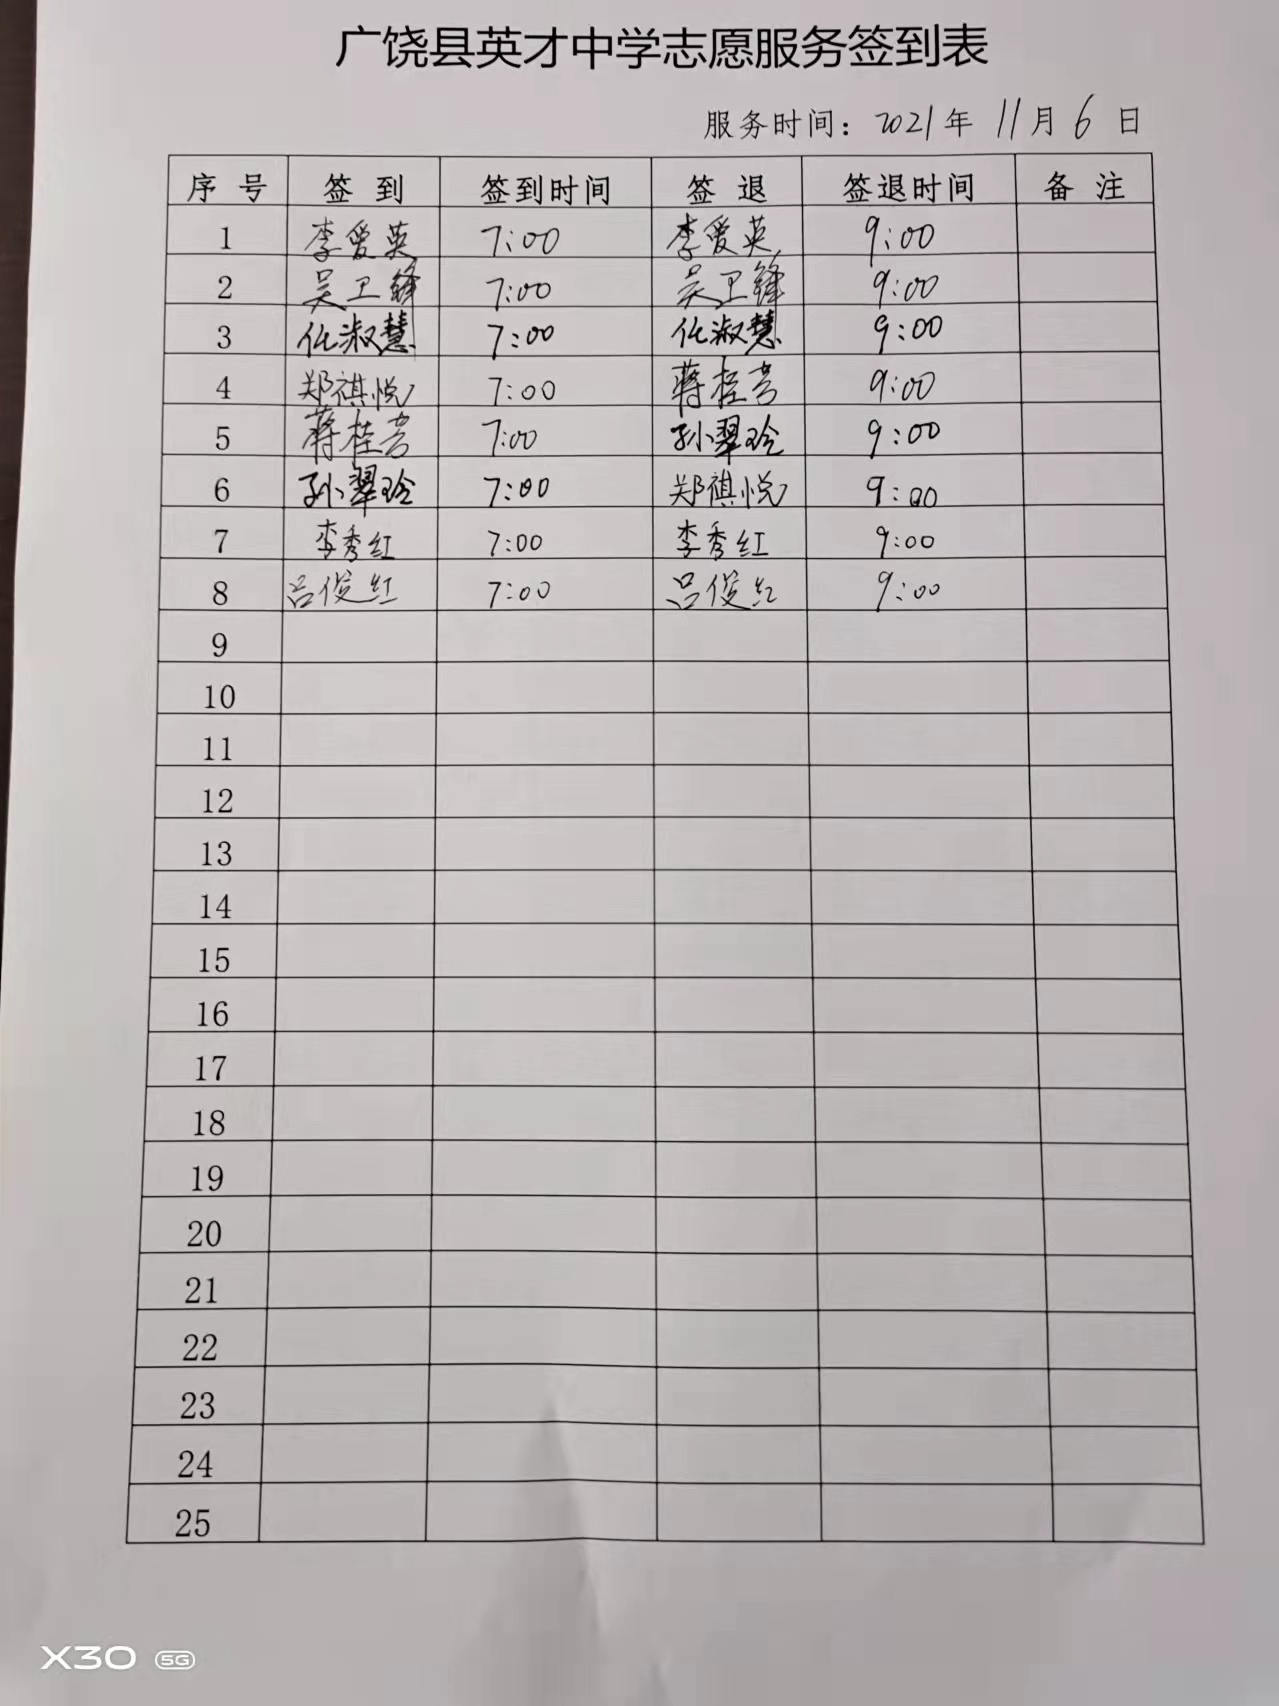 广饶县英才中学志愿服务签到表
服务时间：2021年 11月 6 日
序 号 签 到 签到时间 签 退 签退时间 备 注
1 李爱英 7:00 李爱英 9:00
2 吴卫锋 7:00 吴卫锋 9:00
3 仇淑慧 7:00 仇淑慧 9:00
4 郑祺悦 7:00 蒋桂芳 9:00
5 蒋桂芳 7:00 孙翠玲 9:00
6 孙翠玲 7:00 郑祺悦 9:00
7 李秀红 7:00 李秀红 9:00
8 吕俊红 7:00 吕俊红 9:00
9
10
11
12
13
14
15
16
17
18
19
20
21
22
23
24
25
X30 5G